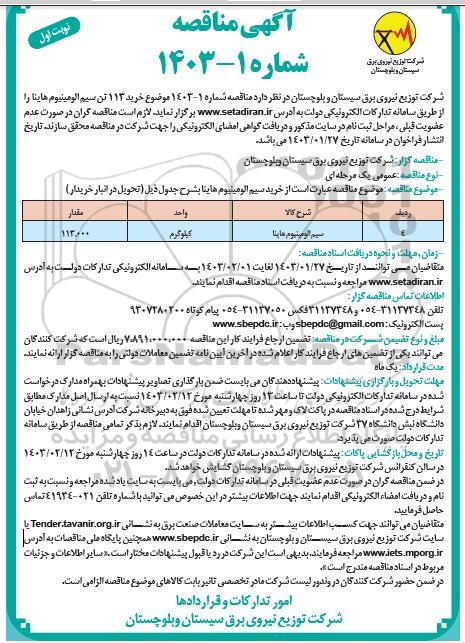 نوبت اول
آگهی مناقصه
شماره ۱-۱۴۰۳
شرکت توزیع نیروی برق
سیستان و بلوچستان
شرکت توزیع نیروی برق سیستان و بلوچستان در نظر دارد مناقصه شماره ۱-۱۴۰۳ موضوع خرید ۱۱۳ تن سیم الومینیوم هاینا را
از طریق سامانه تدارکات الکترونیکی دولت به آدرس www.setadiran.ir برگزار نماید. لازم است مناقصه گران در صورت عدم
عضویت قبلی، مراحل ثبت نام در سایت مذکور و دریافت گواهی امضای الکترونیکی را جهت شرکت در مناقصه محقق سازند. تاریخ
انتشار فراخوان در سامانه تاریخ ۱۴۰۳/۰۱/۲۷ می باشد.
-مناقصه گزار: شرکت توزیع نیروی برق سیستان وبلوچستان
-نوع مناقصه: عمومی یک مرحله ای
-موضوع مناقصه: موضوع مناقصه عبارت است از خرید سیم الومینیوم هاینا بشرح جدول ذیل (تحویل در انبار خریدار)
ردیف شرح کالا واحد مقدار
۴ سیم الومینیوم هاینا کیلوگرم ۱۱۳.۰۰۰
-زمان، مهلت و نحوه دریافت اسناد مناقصه:
متقاضیان می تواننــد از تاریــخ ۱۴۰۳/۰۱/۲۷ لغایت ۱۴۰۳/۰۲/۰۱ بــه ســامانه الکترونیکی تدارکات دولــت به آدرس
www.setadiran.ir مراجعه و نسبت به دریافت اسناد مناقصه اقدام نمایند.
اطلاعات تماس مناقصه گزار:
تلفن ۳۱۱۳۷۳۴۸-۰۵۴ و ۳۱۱۳۷۳۴۸ فکس ۳۱۱۳۷۰۵۰-۰۵۴ پیام کوتاه ۹۳۰۷۲۸۰۲۰۰
پست الکترونیک: sbepdc@gmail.com وب: www.sbepdc.ir
مبلغ و نوع تضمین شــرکت در مناقصه: تضمین ارجاع فرایند کار این مناقصه ۷.۸۹۱.۰۰۰.۰۰۰ ریال است که شرکت کنندگان
می توانند یکی از تضمین های ارجاع فرایند کار اعلام شده در آخرین آیین نامه تضمین معاملات دولتی را به مناقصه گزار ارائه نمایند.
مدت قرارداد: یک ماه
مهلت تحویل و بارگزاری پیشنهادات: پیشنهاددهندگان می بایست ضمن بارگذاری تصاویر پیشنهادات بهمراه مدارک درخواست
شده در سامانه تدارکات الکترونیکی دولت تا ساعت ۱۳ روز چهارشنبه مورخ ۱۴۰۳/۰۲/۱۲ نسبت به ارسال اصل مدارک مطابق
شرایط درج شده در اسناد مناقصه در پاکت لاک و مهر شده تا مهلت تعیین شده فوق به دبیرخانه شرکت آدرس نشانی زاهدان خیابان
دانشگاه نبش دانشگاه ۳۷ شرکت توزیع نیروی برق سیستان وبلوچستان اقدام نمایند. لازم بذکر تمامی مناقصه از طریق سامانه
تدارکات دولت صورت می پذیرد.
تاریخ و محل بازگشایی پاکات: پیشنهادات ارائه شده در سامانه تدارکات دولت در ساعت ۱۴ روز چهارشنبه مورخ ۱۴۰۳/۰۲/۱۲
در سالن کنفرانس شرکت توزیع نیروی برق سیستان و بلوچستان گشایش خواهد شد.
در ضمن مناقصه گران در صورت عدم عضویت قبلی در سامانه تدارکات دولت، می بایست به سایت یاد شده مراجعه و نسبت به ثبت
نام و دریافت امضاء الکترونیکی اقدام نمایند جهت اطلاعات بیشتر در این خصوص می توانید با شماره تلفن ۰۲۱-۴۱۹۳۴ تماس
حاصل فرمایید.
متقاضیان می توانند جهت کســب اطلاعات بیشــتر به ســایت معاملات صنعت برق به نشــانی Tender.tavanir.org.ir یا
سایت شرکت توزیع نیروی برق سیســتان و بلوچستان به نشانی www.sbepdc.ir همچنین پایگاه ملی مناقصات به آدرس
www.iets.mporg.ir مراجعه فرمایند. بدیهی است این شرکت در رد یا قبول پیشنهادات مختار است. «سایر اطلاعات و جزییات
مربوط در اسناد مناقصه مندرج است».
در ضمن حضور شرکت کنندگان در وندور لیست شرکت مادر تخصصی تانیر بابت کالاهای موضوع مناقصه الزامی است.
امور تدارکات و قراردادها
شرکت توزیع نیروی برق سیستان وبلوچستان